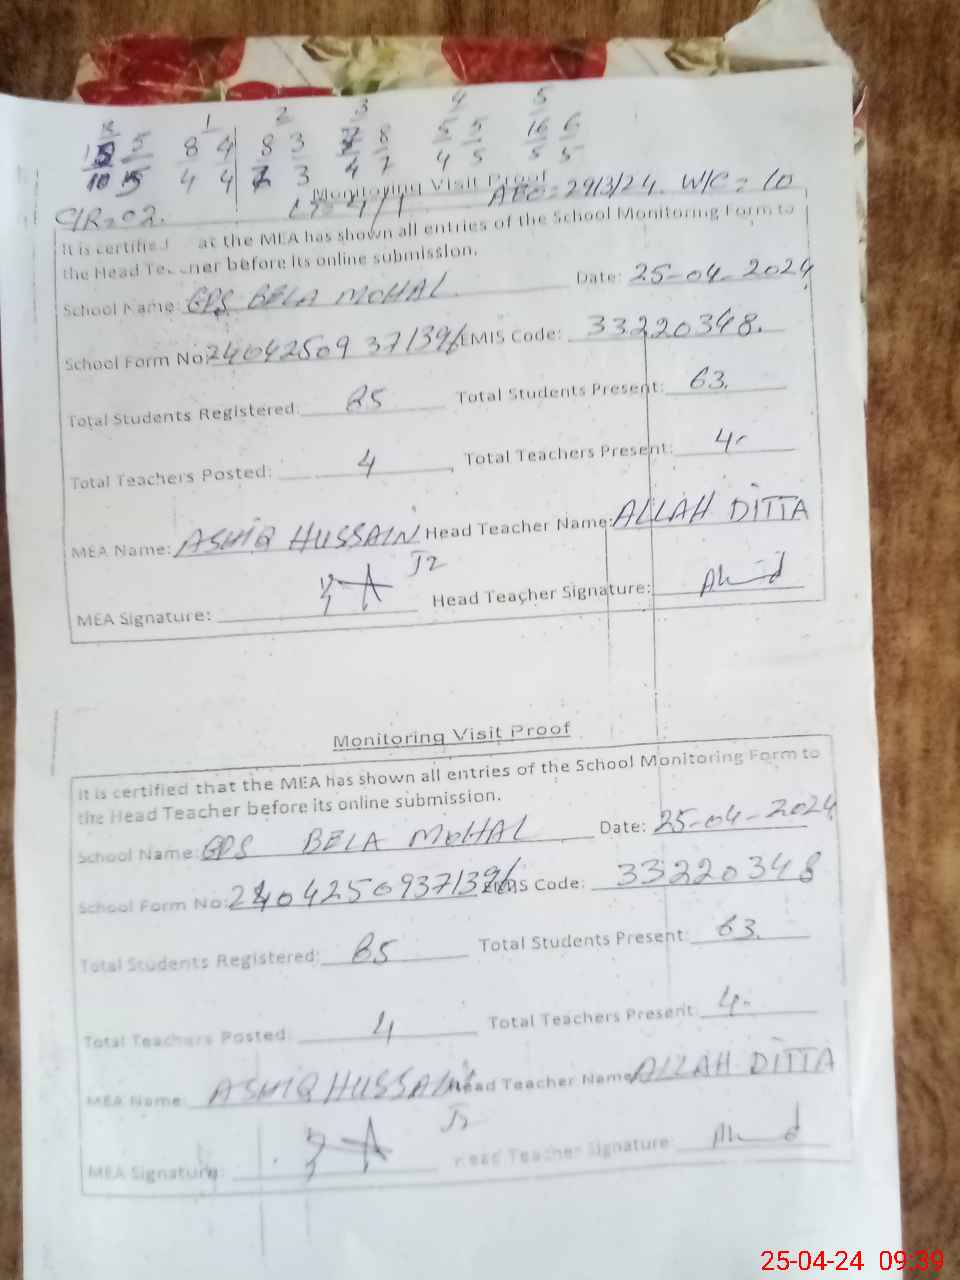 1 2 3 4 5
5 8 4 8 3 8 5 5 16 6
10 5 4 4 3 4 7 4 5 5 5
Monitoring Visit Proof
29/3/24. W/C = 10
C/R=02.
It is certified at the MEA has shown all entries of the School Monitoring Form to
the Head Teacher before its online submission.
School Name: GPS BELA MOHAL Date: 25-04-2024
School Form No: EMIS Code: 33220348.
Total Students Registered: 85 Total Students Present: 63.
Total Teachers Posted: 4 Total Teachers Present: 4
MEA Name: ASHIQ HUSSAIN Head Teacher Name: ALLAH DITTA
MEA Signature: Head Teacher Signature:
Monitoring Visit Proof
It is certified that the MEA has shown all entries of the School Monitoring Form to
the Head Teacher before its online submission.
School Name: GPS BELA MOHAL Date: 25-04-2024
School Form No: EMIS Code: 33220348
Total Students Registered: 85 Total Students Present: 63.
Total Teachers Posted: 4 Total Teachers Present: 4
MEA Name: ASHIQ HUSSAIN Head Teacher Name: ALLAH DITTA
MEA Signature: Head Teacher Signature:
25-04-24 09:39